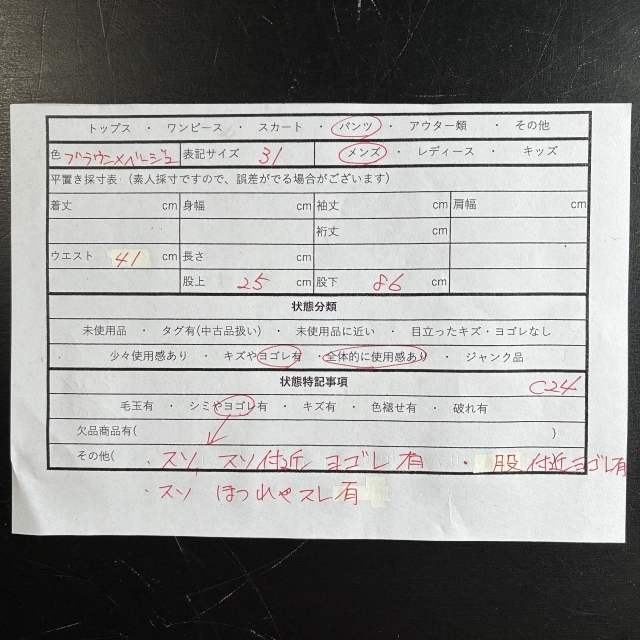 トップス ・ ワンピース ・ スカート ・ パンツ ・ アウター類 ・ その他
色 ブラウン×ベージュ 表記サイズ 31 メンズ ・ レディース ・ キッズ
平置き採寸表 (素人採寸ですので、誤差がでる場合がございます)
着丈 cm 身幅 cm 袖丈 cm 肩幅 cm
裄丈 cm
ウエスト 41 cm 長さ cm
股上 25 cm 股下 86 cm
状態分類
未使用品 ・ タグ有(中古品扱い) ・ 未使用品に近い ・ 目立ったキズ・ヨゴレなし
少々使用感あり ・ キズやヨゴレ有 ・ 全体的に使用感あり ・ ジャンク品
状態特記事項 C24
毛玉有 ・ シミやヨゴレ有 ・ キズ有 ・ 色褪せ有 ・ 破れ有
欠品商品有( )
その他( ・スソ、スソ付近 ヨゴレ有 ・股付近ヨゴレ有
・スソ ほつれやスレ有